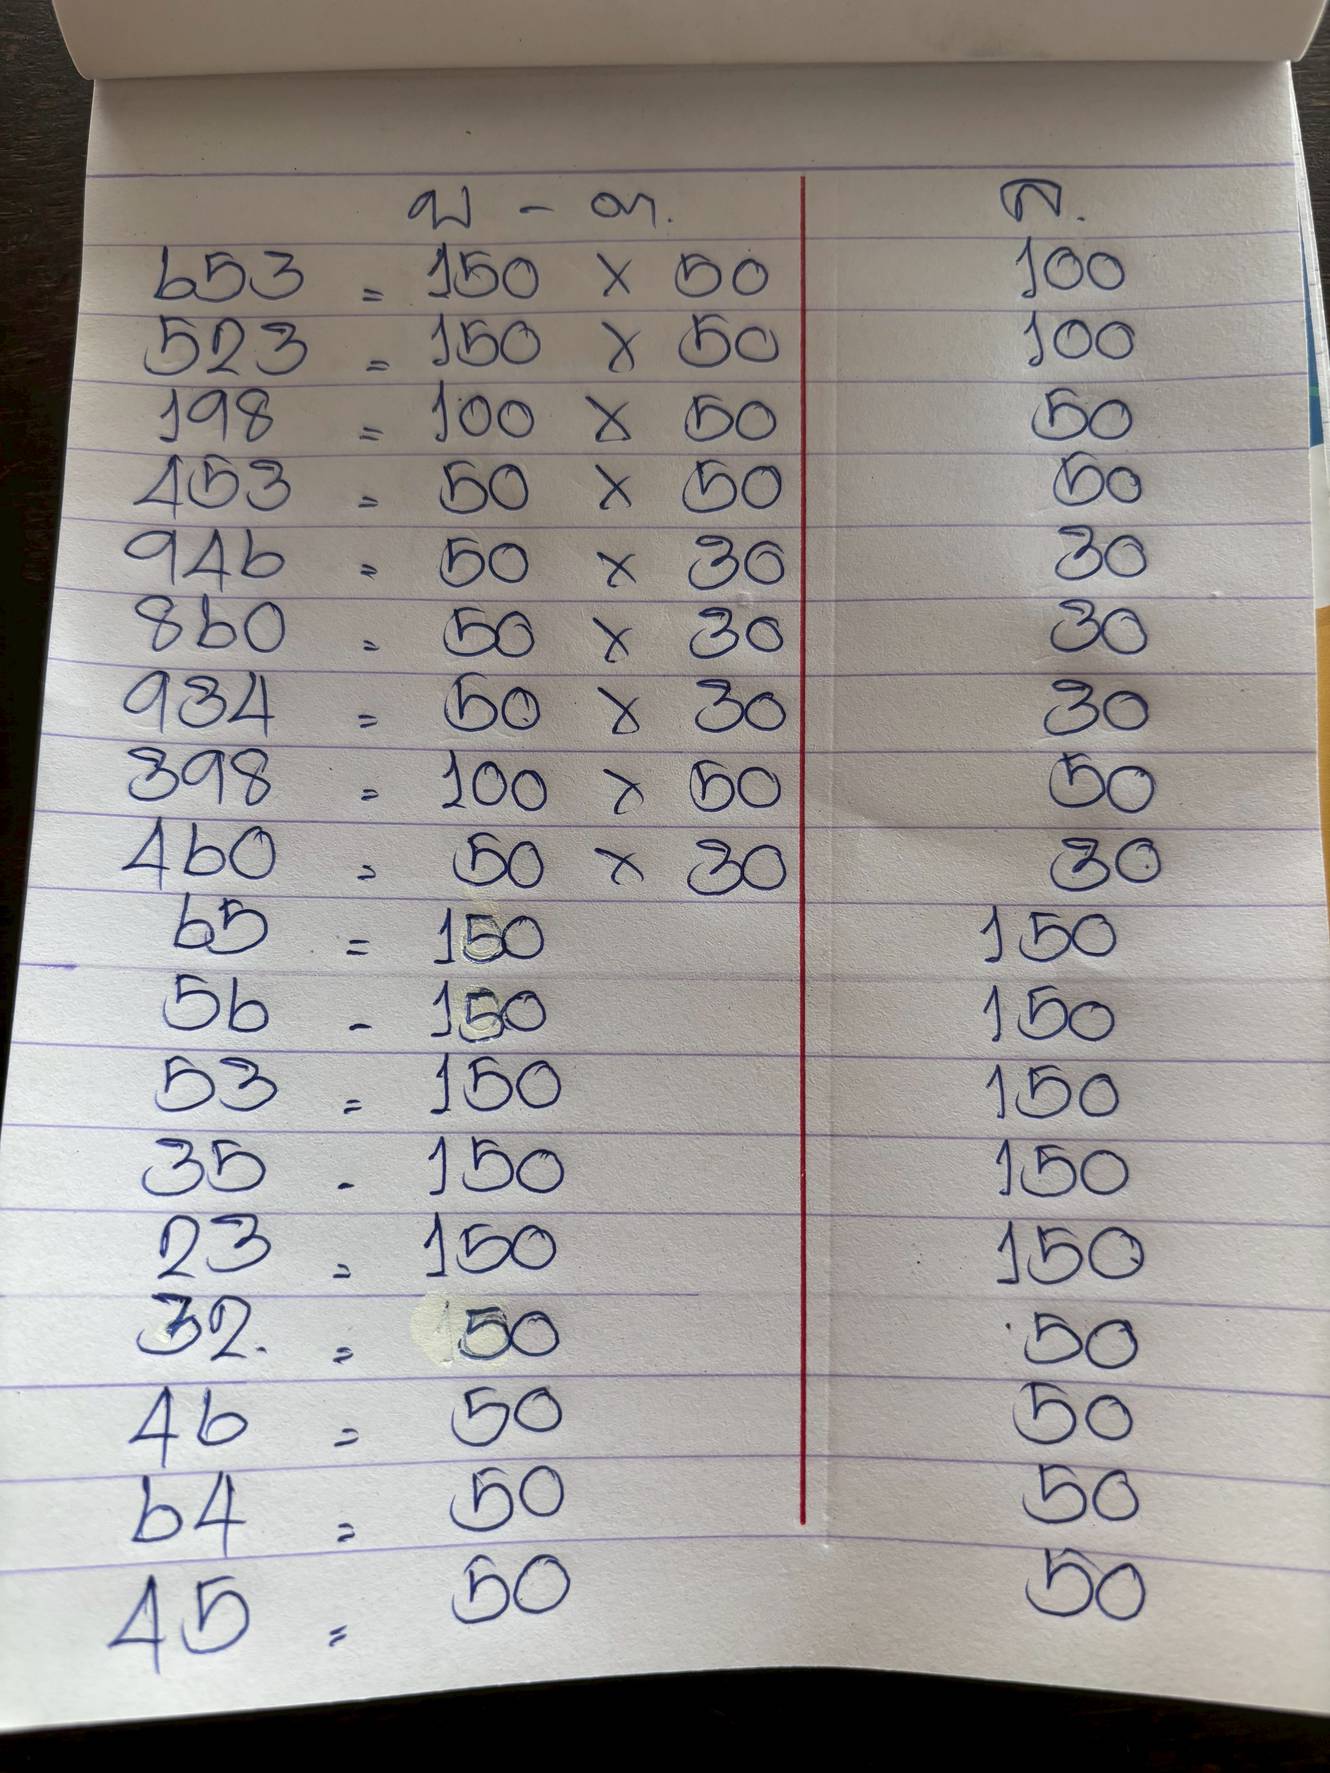 บ - ต. ล.
653 = 150 x 50 100
523 = 150 x 50 100
198 = 100 x 50 50
453 = 50 x 50 50
946 = 50 x 30 30
860 = 50 x 30 30
934 = 50 x 30 30
398 = 100 x 50 50
460 = 50 x 30 30
65 = 150 150
56 - 150 150
53 = 150 150
35 - 150 150
23 = 150 150
32. = 50 50
46 = 50 50
64 = 50 50
45 = 50 50